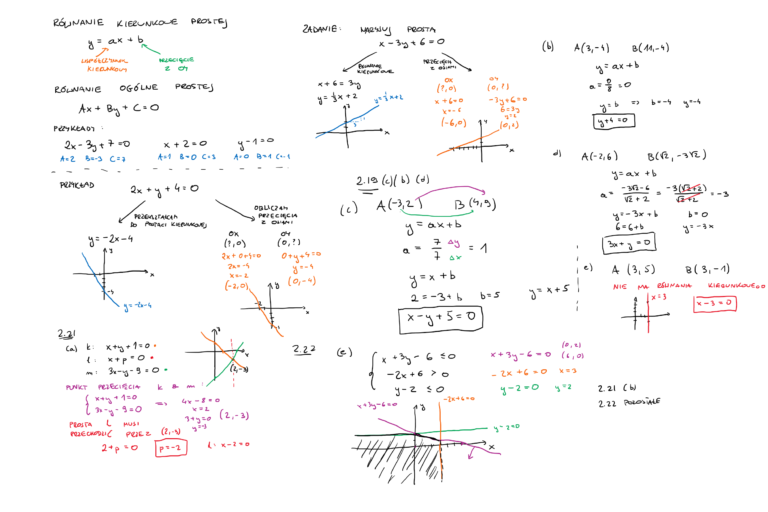 RÓWNANIE KIERUNKOWE PROSTEJ
y = ax + b
WSPÓŁCZYNNIK KIERUNKOWY
PRZECIĘCIE Z OY
RÓWNANIE OGÓLNE PROSTEJ
Ax + By + C = 0
PRZYKŁADY:
2x - 3y + 7 = 0
x + 2 = 0
y - 1 = 0
A=2 B=-3 C=7
A=1 B=0 C=2
A=0 B=1 C=-1
PRZYKŁAD
2x + y + 4 = 0
DO POSTACI KIERUNKOWEJ
OBLICZAM PRZECIĘCIA Z OSIAMI
y = -2x - 4
OX
(?, 0)
2x + 0 + 4 = 0
2x = -4
x = -2
(-2, 0)
OY
(0, ?)
0 + y + 4 = 0
y = -4
(0, -4)
y
x
-4
y = -2x - 4
y
-2
x
-4
2.21
(a) k: x + y + 1 = 0
l: x + p = 0
m: 3x - y - 9 = 0
(2, -3)
PUNKT PRZECIĘCIA k i m
x + y + 1 = 0
3x - y - 9 = 0
=>
4x - 8 = 0
x = 2
3 + y = 0
y = -3
(2, -3)
PROSTA l MUSI
PRZECHODZIĆ PRZEZ (2, -3)
2 + p = 0
p = -2
l: x - 2 = 0
ZADANIE: NARYSUJ PROSTĄ
x - 3y + 6 = 0
RÓWNANIE KIERUNKOWE
PRZECIĘCIA Z OSIAMI
x + 6 = 3y
y = 1/3 x + 2
y = 1/3 x + 2
y
x
OX
(?, 0)
x + 6 = 0
x = -6
(-6, 0)
OY
(0, ?)
-3y + 6 = 0
6 = 3y
y = 2
(0, 2)
y
x
2.19 (c) (b) (d)
(c) A(-3, 2) B(4, 9)
y = ax + b
a = 7/7 = 1
Δy
Δx
y = x + b
2 = -3 + b
b = 5
y = x + 5
x - y + 5 = 0
2.22
(e)
x + 3y - 6 ≤ 0
-2x + 6 > 0
y - 2 ≤ 0
x + 3y - 6 = 0
(0, 2)
(6, 0)
-2x + 6 = 0
x = 3
y - 2 = 0
y = 2
x + 3y - 6 = 0
y
-2x + 6 = 0
y - 2 = 0
x
(b) A(3, -4) B(11, -4)
y = ax + b
a = 0/8 = 0
y = b => b = -4 y = -4
y + 4 = 0
d) A(-2, 6) B(√2, -3√2)
y = ax + b
a = (-3√2 - 6)/(√2 + 2) = -3(√2 + 2)/(√2 + 2) = -3
y = -3x + b
b = 0
6 = 6 + b
y = -3x
3x + y = 0
e) A (3, 5) B(3, -1)
NIE MA RÓWNANIA KIERUNKOWEGO
x = 3
x - 3 = 0
2.21 (b)
2.22 POZOSTAŁE